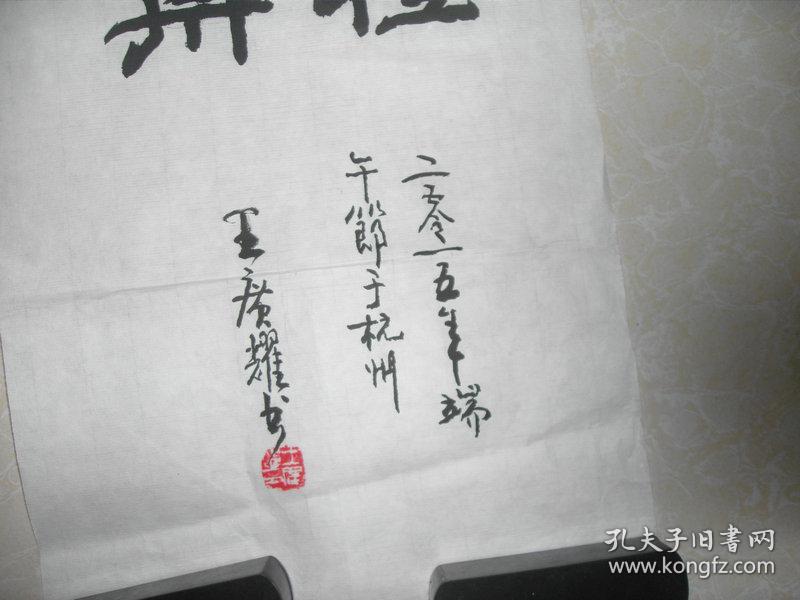 二零一五年端
午節于杭州
王廣耀书
孔夫子旧書网
www.kongfz.com